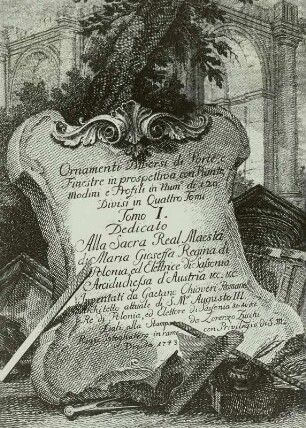 Ornamenti Diversi di Porte e
Finestre in prospettiva con Piante
Modini e Profili in Num° di
Divisi in Quattro Tomi.
Tomo I.
Dedicato
Alla Sacra Real Maestà
di Maria Gioseffa Regina di
Polonia ed Elettrice di Sassonia
Arciduchessa d'Austria &c. &c.
Inventati da Gaetano Chiaveri Romano
Architetto attuale di S. M. Augusto III.
Re di Polonia, ed Elettore di Sassonia &c. &c.
Dati alla Stampa da Lorenzo Zucchi
Intagliatore in rame con Privilegio di S. M.
1743